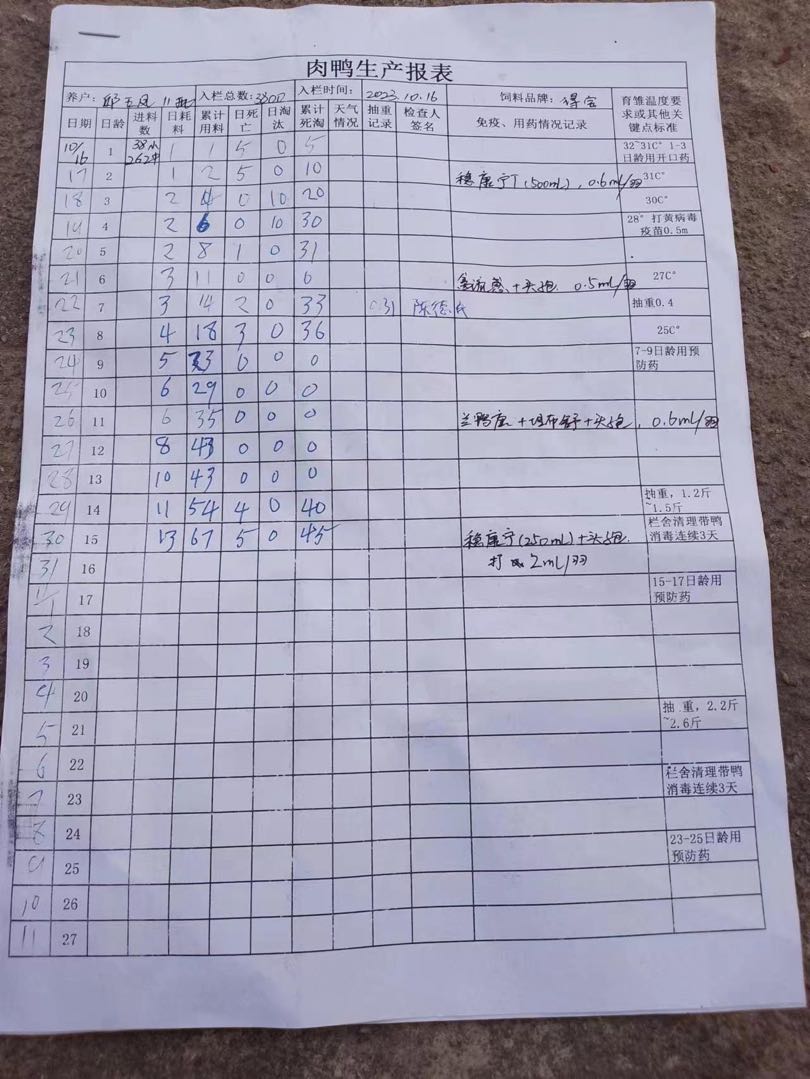 肉鸭生产报表
养户: 邱 凤 11批 入栏总数: 3300 入栏时间: 2023.10.16 饲料品牌: 得宝 育雏温度要求或其他关键点标准
日期 日龄 进料数 日耗料 累计用料 日死亡 日淘汰 累计死淘 天气情况 抽重记录 检查人签名 免疫、用药情况记录
10/16 1 38小 262中 1 1 5 0 5 32~31C° 1-3日龄用开口药
17 2 1 2 5 0 10 稳康宁T(500mL), 0.6mL/羽 31C°
18 3 2 4 0 10 20 30C°
19 4 2 6 0 10 30 28° 打黄病毒疫苗0.5m
20 5 2 8 1 0 31
21 6 3 11 0 0 0 禽流感+头孢 0.5mL/羽 27C°
22 7 3 14 2 0 33 0.31 陈德 抽重0.4
23 8 4 18 3 0 36 25C°
24 9 5 23 0 0 0 7-9日龄用预防药
25 10 6 29 0 0 0
26 11 6 35 0 0 0 兰鸭康 + +头孢, 0.6mL/羽
27 12 8 43 0 0 0
28 13 10 43 0 0 0
29 14 11 54 4 0 40 抽重, 1.2斤~1.5斤
30 15 13 67 5 0 45 稳康宁(250mL)+头孢. 栏舍清理带鸭消毒连续3天
31 16 打 2mL/羽
11/1 17 15-17日龄用预防药
2 18
3 19
4 20
5 21 抽 重, 2.2斤~2.6斤
6 22
7 23 栏舍清理带鸭消毒连续3天
8 24
9 25 23-25日龄用预防药
10 26
11 27